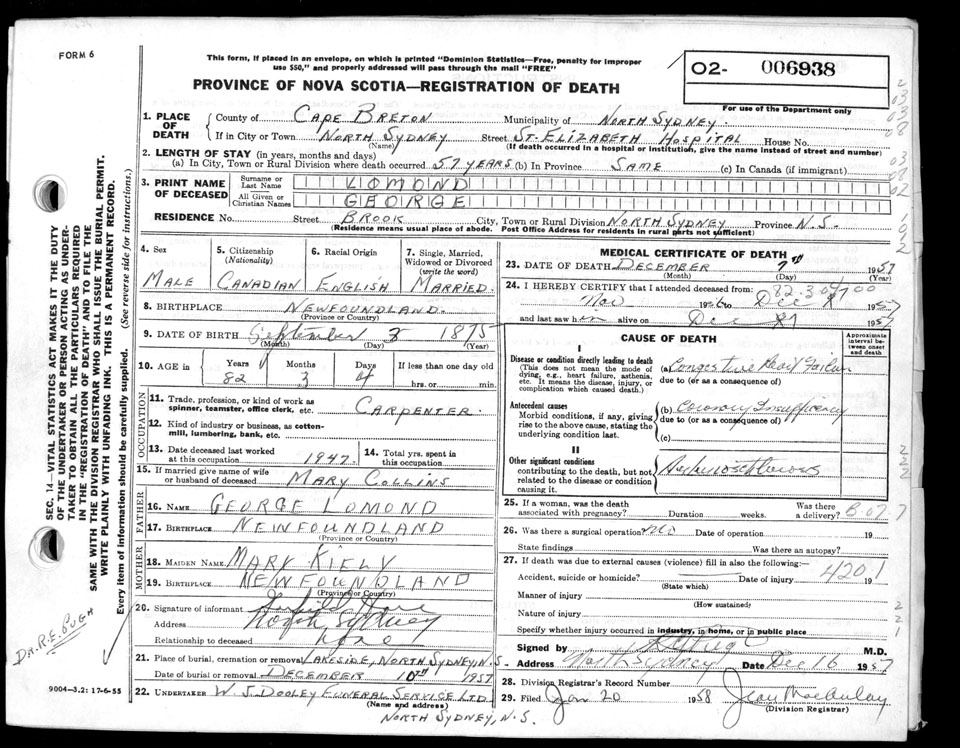 FORM 6
This form, if placed in an envelope, on which is printed "Dominion Statistics—Free, penalty for improper
use $50," and properly addressed will pass through the mail "FREE"
PROVINCE OF NOVA SCOTIA—REGISTRATION OF DEATH
02- 006938
For use of the Department only
1. PLACE OF DEATH
County of CAPE BRETON Municipality of NORTH SYDNEY
If in City or Town NORTH SYDNEY Street ST. ELIZABETH HOSPITAL House No.
(Name) (If death occurred in a hospital or institution, give the name instead of street and number)
2. LENGTH OF STAY (in years, months and days)
(a) In City, Town or Rural Division where death occurred 57 YEARS (b) In Province SAME (c) In Canada (if immigrant)
3. PRINT NAME OF DECEASED
Surname or Last Name LOMOND
All Given or Christian Names GEORGE
RESIDENCE No. Street BROOK City, Town or Rural Division NORTH SYDNEY Province N.S.
(Residence means usual place of abode. Post Office Address for residents in rural parts not sufficient)
4. Sex
MALE
5. Citizenship
(Nationality)
CANADIAN
6. Racial Origin
ENGLISH
7. Single, Married,
Widowed or Divorced
(write the word)
MARRIED.
8. BIRTHPLACE NEWFOUNDLAND.
(Province or Country)
9. DATE OF BIRTH September 3 1875
(Month) (Day) (Year)
10. AGE in Years Months Days If less than one day old
82 3 4 hrs. or min.
OCCUPATION
11. Trade, profession, or kind of work as
spinner, teamster, office clerk, etc. CARPENTER.
12. Kind of industry or business, as cotton-
mill, lumbering, bank, etc.
13. Date deceased last worked
at this occupation 1947.
14. Total yrs. spent in
this occupation
15. If married give name of wife
or husband of deceased MARY COLLINS
FATHER
16. NAME GEORGE LOMOND
17. BIRTHPLACE NEWFOUNDLAND
(Province or Country)
MOTHER
18. MAIDEN NAME MARY KIELY
19. BIRTHPLACE NEWFOUNDLAND
(Province or Country)
20. Signature of informant
Address North Sydney
Relationship to deceased none
21. Place of burial, cremation or removal LAKESIDE, NORTH SYDNEY, N.S.
Date of burial or removal DECEMBER 10TH 1957
22. UNDERTAKER W. J. DOOLEY FUNERAL SERVICE LTD
(Name and address)
NORTH SYDNEY, N.S.
MEDICAL CERTIFICATE OF DEATH
23. DATE OF DEATH DECEMBER 7th 1957
(Month) (Day)
24. I HEREBY CERTIFY that I attended deceased from:
Nov 1956 to Dec 1957
and last saw him alive on Dec 1957
CAUSE OF DEATH
Approximate interval between onset and death
I
Disease or condition directly leading to death
(This does not mean the mode of
dying, e.g., heart failure, asthenia,
etc. It means the disease, injury, or
complication which caused death.)
(a) Congestive Heart Failure
due to (or as a consequence of)
Antecedent causes
Morbid conditions, if any, giving
rise to the above cause, stating the
underlying condition last.
(b) Coronary Insufficiency
due to (or as a consequence of)
(c)
II
Other significant conditions
contributing to the death, but not
related to the disease or condition
causing it.
Arteriosclerosis
25. If a woman, was the death Was there
associated with pregnancy? Duration weeks. a delivery?
26. Was there a surgical operation? No Date of operation 19
State findings Was there an autopsy?
27. If death was due to external causes (violence) fill in also the following:—
Accident, suicide or homicide? Date of injury 19
(State which)
4201
Manner of injury
(How sustained)
Nature of injury
Specify whether injury occurred in industry, in home, or in public place
Signed by M.D.
Address North Sydney Date Dec 16 1957
28. Division Registrar's Record Number
29. Filed Jan 20 1958 Jean MacAulay
(Division Registrar)
SEC. 14—VITAL STATISTICS ACT MAKES IT THE DUTY
OF THE UNDERTAKER OR PERSON ACTING AS UNDER-
TAKER TO OBTAIN ALL THE PARTICULARS REQUIRED
IN THE "REGISTRATION OF DEATH" AND TO FILE THE
SAME WITH THE DIVISION REGISTRAR WHO SHALL ISSUE THE BURIAL PERMIT.
WRITE PLAINLY WITH UNFADING INK. THIS IS A PERMANENT RECORD.
Every item of information should be carefully supplied. (See reverse side for instructions.)
DR. R.E. PUGH
9004—3.2: 17-6-55